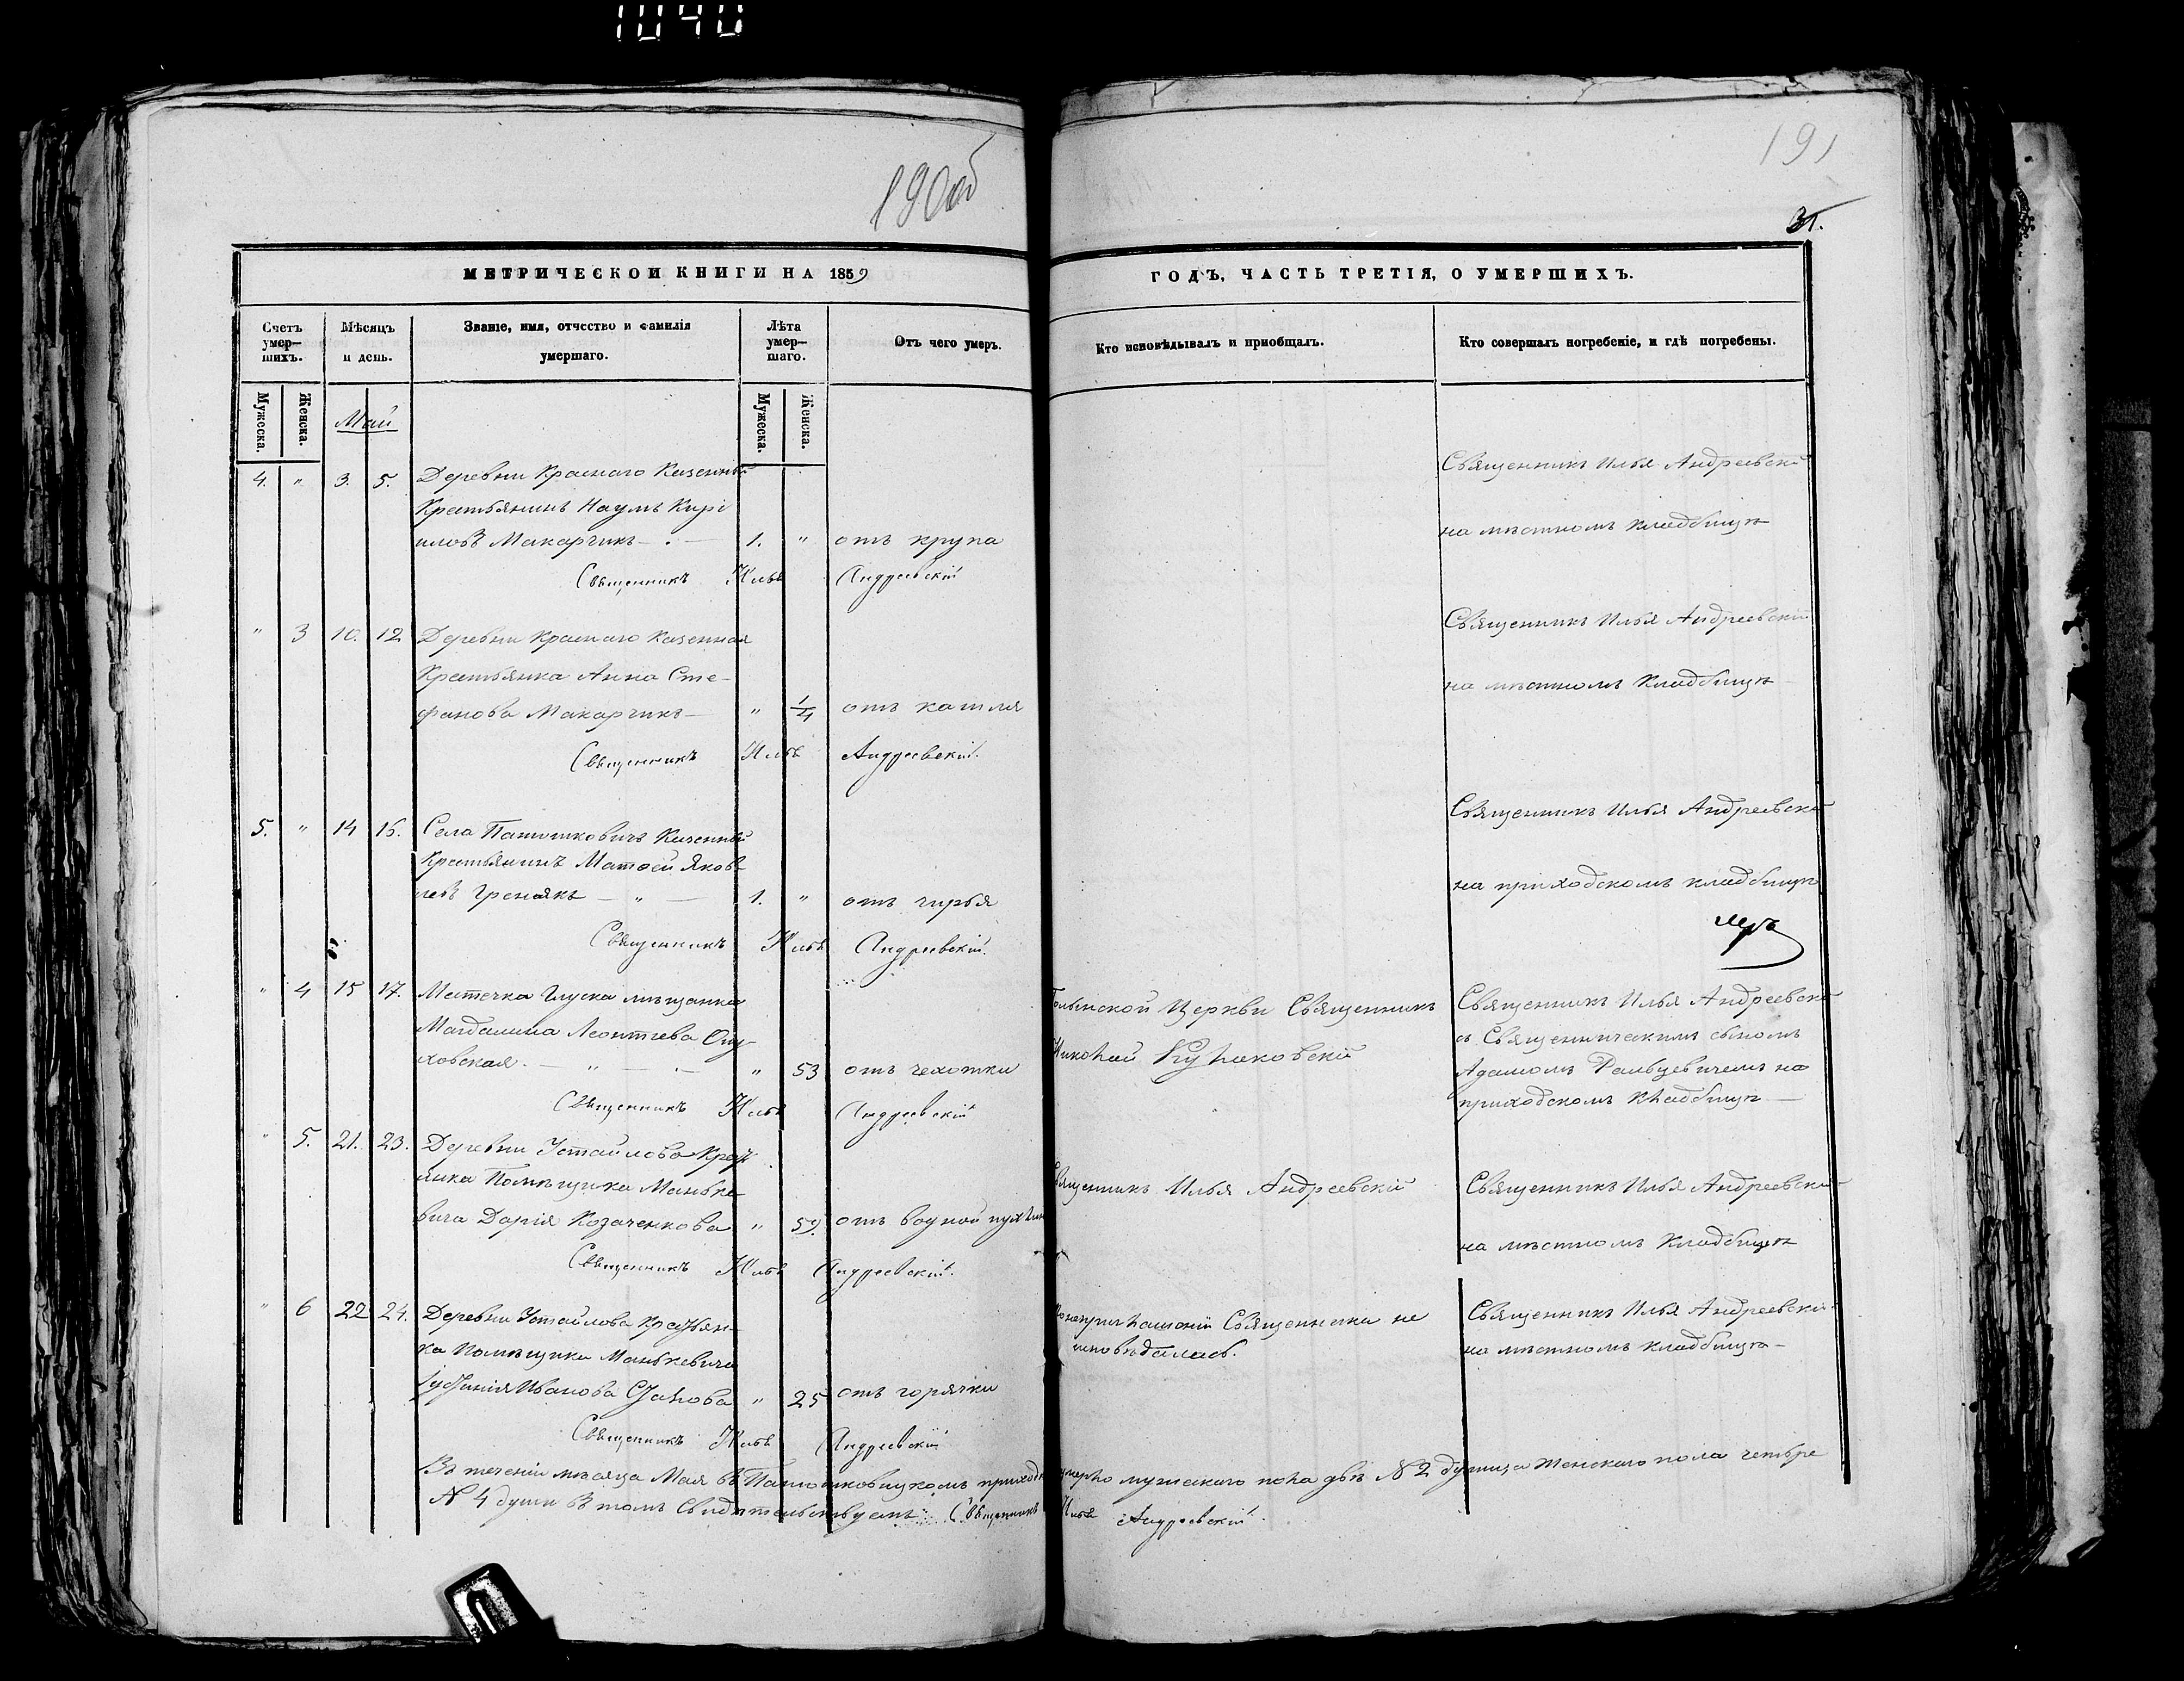 1040
190об
191
31.
МЕТРИЧЕСКОЙ КНИГИ НА 1859
ГОДЪ, ЧАСТЬ ТРЕТІЯ, О УМЕРШИХЪ.
Счетъ умер-шихъ.
Мѣсяцъ и день.
Званіе, имя, отчество и фамилія умершаго.
Лѣта умер-шаго.
Отъ чего умеръ.
Кто исповѣдывалъ и пріобщалъ.
Кто совершалъ погребеніе, и гдѣ погребены.
Мужеска.
Женска.
Мужеска.
Женска.
Май
4. " 3. 5. Деревни Краснаго Казенный
Крестьянинъ Наумъ Кирі
иловъ Макарчикъ 1. " отъ крупа
Священникъ Илья Андреевскій
Священникъ Илья Андреевскій
на мѣстномъ кладбищѣ
" 3 10. 12 Деревни Краснаго Казенная
Крестьянка Анна Сте-
фанова Макарчикъ " 1/4 отъ кашля
Священникъ Илья Андреевскій.
Священникъ Илья Андреевскій
на мѣстномъ кладбищѣ
5. " 14 16. Села Казенный
Крестьянинъ Матѳей Яков-
левъ 1. " отъ
Священникъ Илья Андреевскій.
Священникъ Илья Андреевскій
на приходскомъ кладбищѣ
" 4 15 17. Местечка Глуска мѣщанка
Магдалина Леонтіева
ховская. " 53 отъ чехотки
Священникъ Илья Андреевскій
Церкви Священникъ
Николай
Священникъ Илья Андреевскій
съ Священническимъ сыномъ
Адамомъ на
приходскомъ кладбищѣ
" 5. 21. 23. Деревни Устайлова Крест
янка Помѣщика Манько
вича Дарія Козаченкова " 59. отъ водной пухлин
Священникъ Илья Андреевскій.
Священникъ Илья Андреевскій
Священникъ Илья Андреевскій
на мѣстномъ кладбищѣ
" 6 22 24. Деревни Устайлова Крестьян-
ка Помѣщика Манькевича
Иванова " 25 отъ горячки
Священникъ Илья Андреевскій
Священника не
исповѣдалась.
Священникъ Илья Андреевскій
на мѣстномъ кладбищѣ
Въ теченіи мѣсяца Мая въ приходѣ умерло мужескаго пола двѣ № 2 души, а женскаго пола четыре
№ 4 души въ томъ свидѣтельствуетъ: Священникъ Илья Андреевскій.